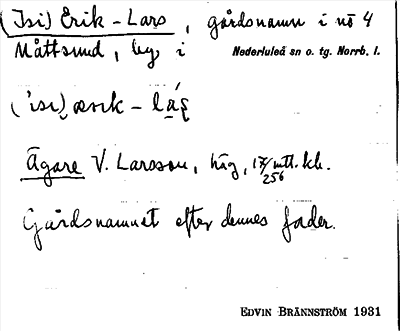 (Isi) Erik-Lars, gårdsnamn i nö 4
Måttsund, by i Nederluleå sn o. tg. Norrb. l.
('isi) ærik-la̱ș
Ägare V. Larsson, häg, 17/256 mtl. kh.
Gårdsnamnet efter dennes fader.
EDVIN BRÄNNSTRÖM 1931